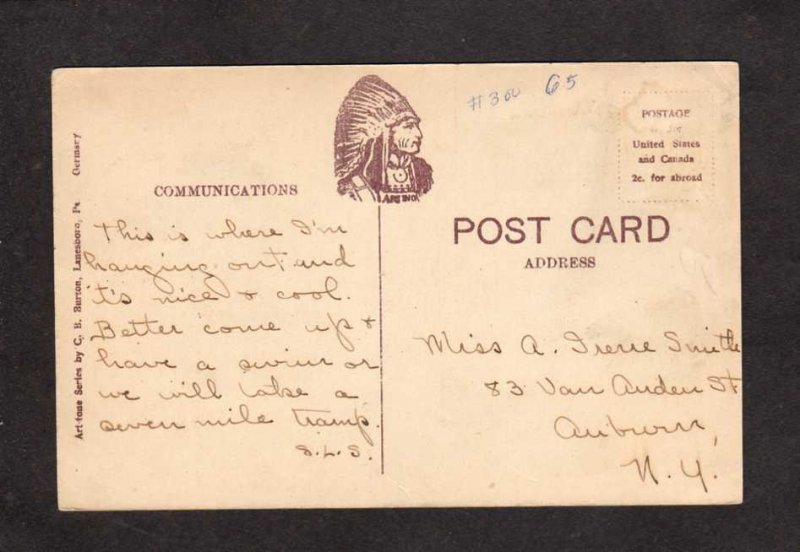 #300 65
POSTAGE
United States
and Canada
2c. for abroad
COMMUNICATIONS
POST CARD
ADDRESS
Art-tone Series by C. B. Burton, Lanesboro, Pa Germany
This is where I'm
hanging out and
it's nice & cool.
Better come up &
have a swim or
we will take a
seven mile tramp.
S.L.S.
Miss A. Irene Smith
83 Van Anden St
Auburn,
N.Y.